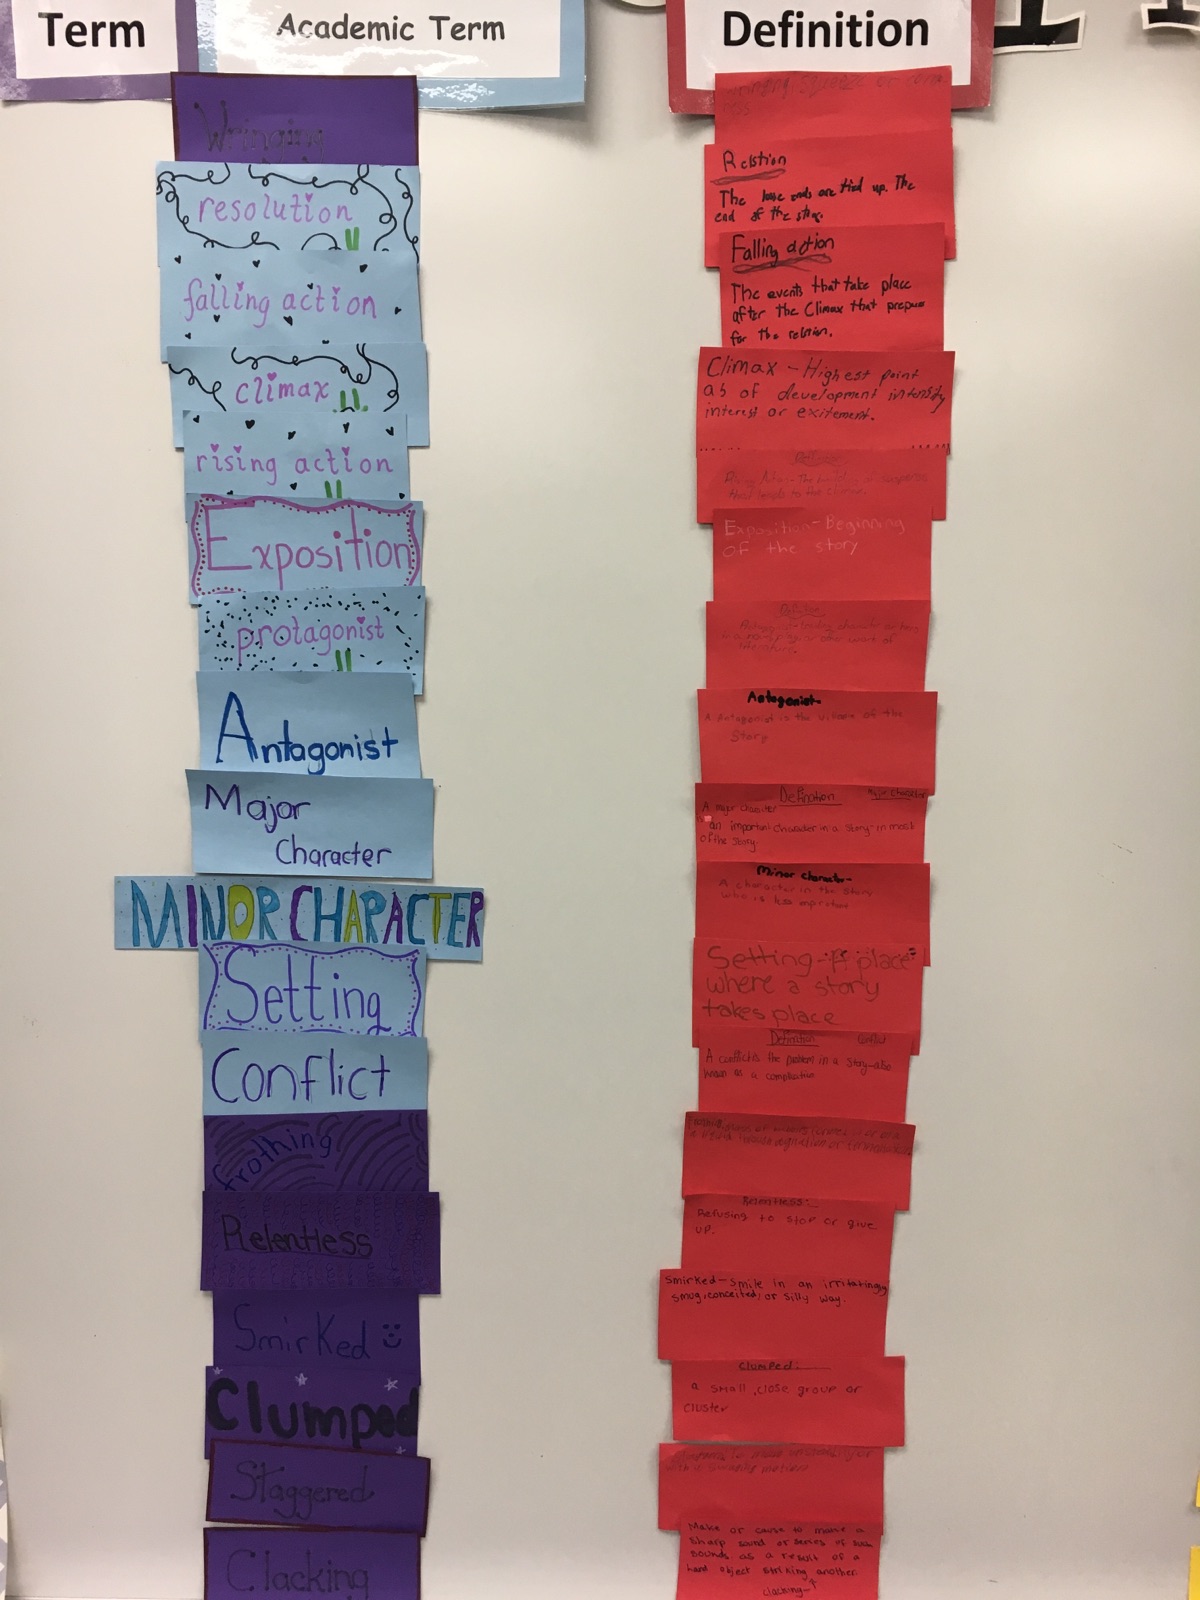 Term
Academic Term
Definition
Wringing
resolution
falling action
climax
rising action
Exposition
protagonist
Antagonist
Major
Character
MINOR CHARACTER
Setting
Conflict
frothing
Relentless
Smirked
Clumped
Staggered
Clacking
Wringing squeeze or
Relstion
The lose ends are tied up. The
end of the
Falling action
The events that take place
after the Climax that
for the relstion.
Climax - Highest point
as of development intensity
interest or exitement.
Rising Action - The building of suspense
that leads to the climax.
Exposition - Beginning
OF the story
Antagonist-
A Antagonist is the of the
Story
Definition Major Character
A major character
an important character in a story- in most
of the story.
Minor character-
A character in the story
who is less
Setting - A place
where a story
takes place
Definition Conflict
A conflict is the problem in a story-also
known as a
Relentless:
Refusing to stop or give
up.
Smirked-smile in an irritatingly
smug, conceited, or silly way.
Clumped:
a small, close group or
cluster
Make or cause to make a
sharp sound or series of such
sounds as a result of a
hard object striking another.
clacking-